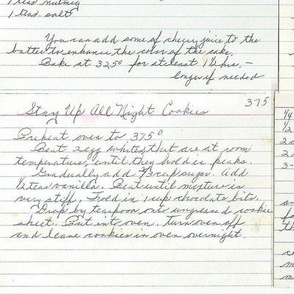 1 tead nutmeg
1 tead. salt
You can add some of cherry juice to the
batter to enhance the color of the cake.
Bake at 325° for at least 1 ½ hrs, -
longer if needed
Stay Up All Night Cookies
375
Preheat oven to 375°
Beat 2 egg whites that are at room
temperature, until they hold in peaks.
Gradually add ⅔ cup sugar. add
½ tead vanilla. Beat until mixture is
very stiff. Fold in 1 cup chocolate bits.
Drop by teaspoon onto ungreased cookie
sheet. Put into oven, turn oven off
and leave cookies in oven overnight.